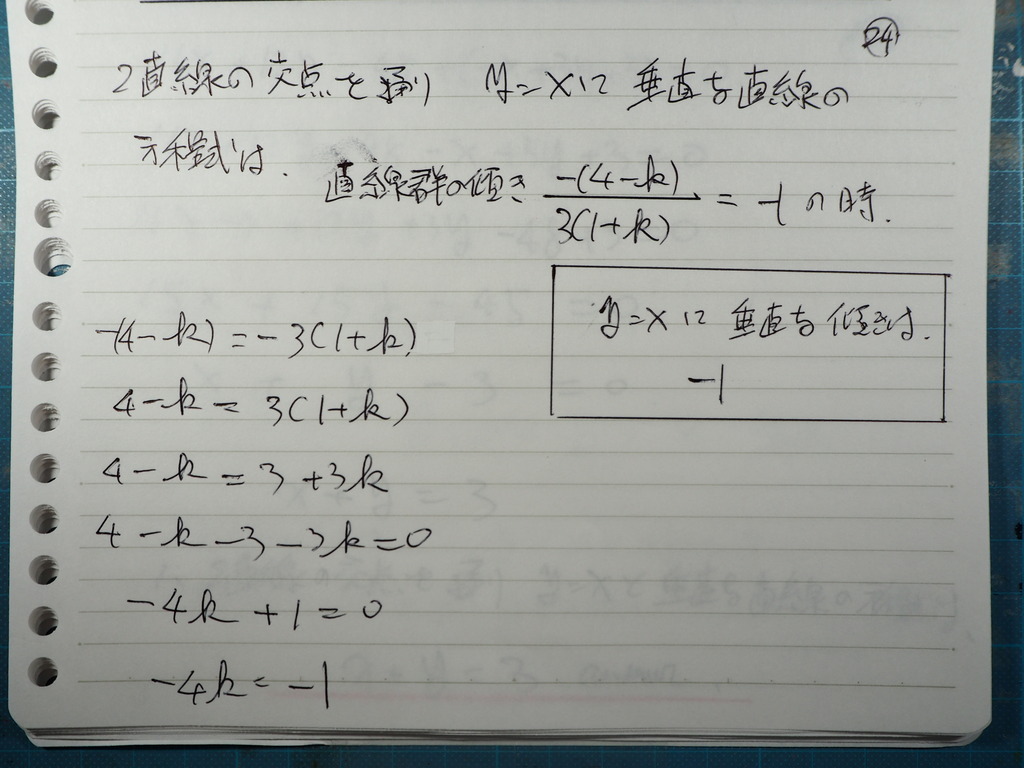 24
2直線の交点を通り y=xに垂直な直線の
方程式は.
直線群の傾き -(4-k)/3(1+k) = -1 の時.
y=xに垂直な傾きは.
-1
-(4-k)=-3(1+k)
4-k=3(1+k)
4-k=3+3k
4-k-3-3k=0
-4k+1=0
-4k=-1